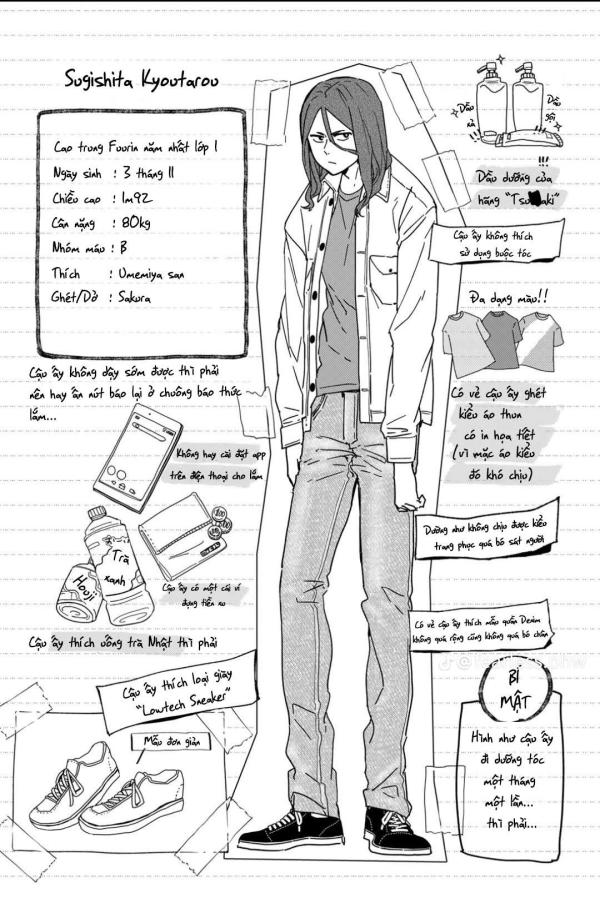 Sugishita Kyoutarou
Cao trung Fuurin năm nhất lớp 1
Ngày sinh : 3 tháng 11
Chiều cao : 1m92
Cân nặng : 80kg
Nhóm máu : B
Thích : Umemiya san
Ghét/Dở : Sakura
Cậu ấy không dậy sớm được thì phải
nên hay ấn nút báo lại ở chuông báo thức
lắm...
Không hay cài đặt app
trên điện thoại cho lắm
Trà
xanh
Houji
Cậu ấy có một cái ví
đựng tiền xu
Cậu ấy thích uống trà Nhật thì phải
Cậu ấy thích loại giày
"Lowtech Sneaker"
Mẫu đơn giản
Dầu
xả
Dầu
gội
!!
!!
!!!
Dầu dưỡng của
hãng "Tsu aki"
Cậu ấy không thích
sử dụng buộc tóc
Đa dạng màu!!
Có vẻ cậu ấy ghét
kiểu áo thun
có in họa tiết
(vì mặc áo kiểu
đó khó chịu)
Dường như không chịu được kiểu
trang phục quá bó sát người
Có vẻ cậu ấy thích mẫu quần Denim
không quá rộng cũng không quá bó chân
BÍ
MẬT
Hình như cậu ấy
đi dưỡng tóc
một tháng
một lần...
thì phải...